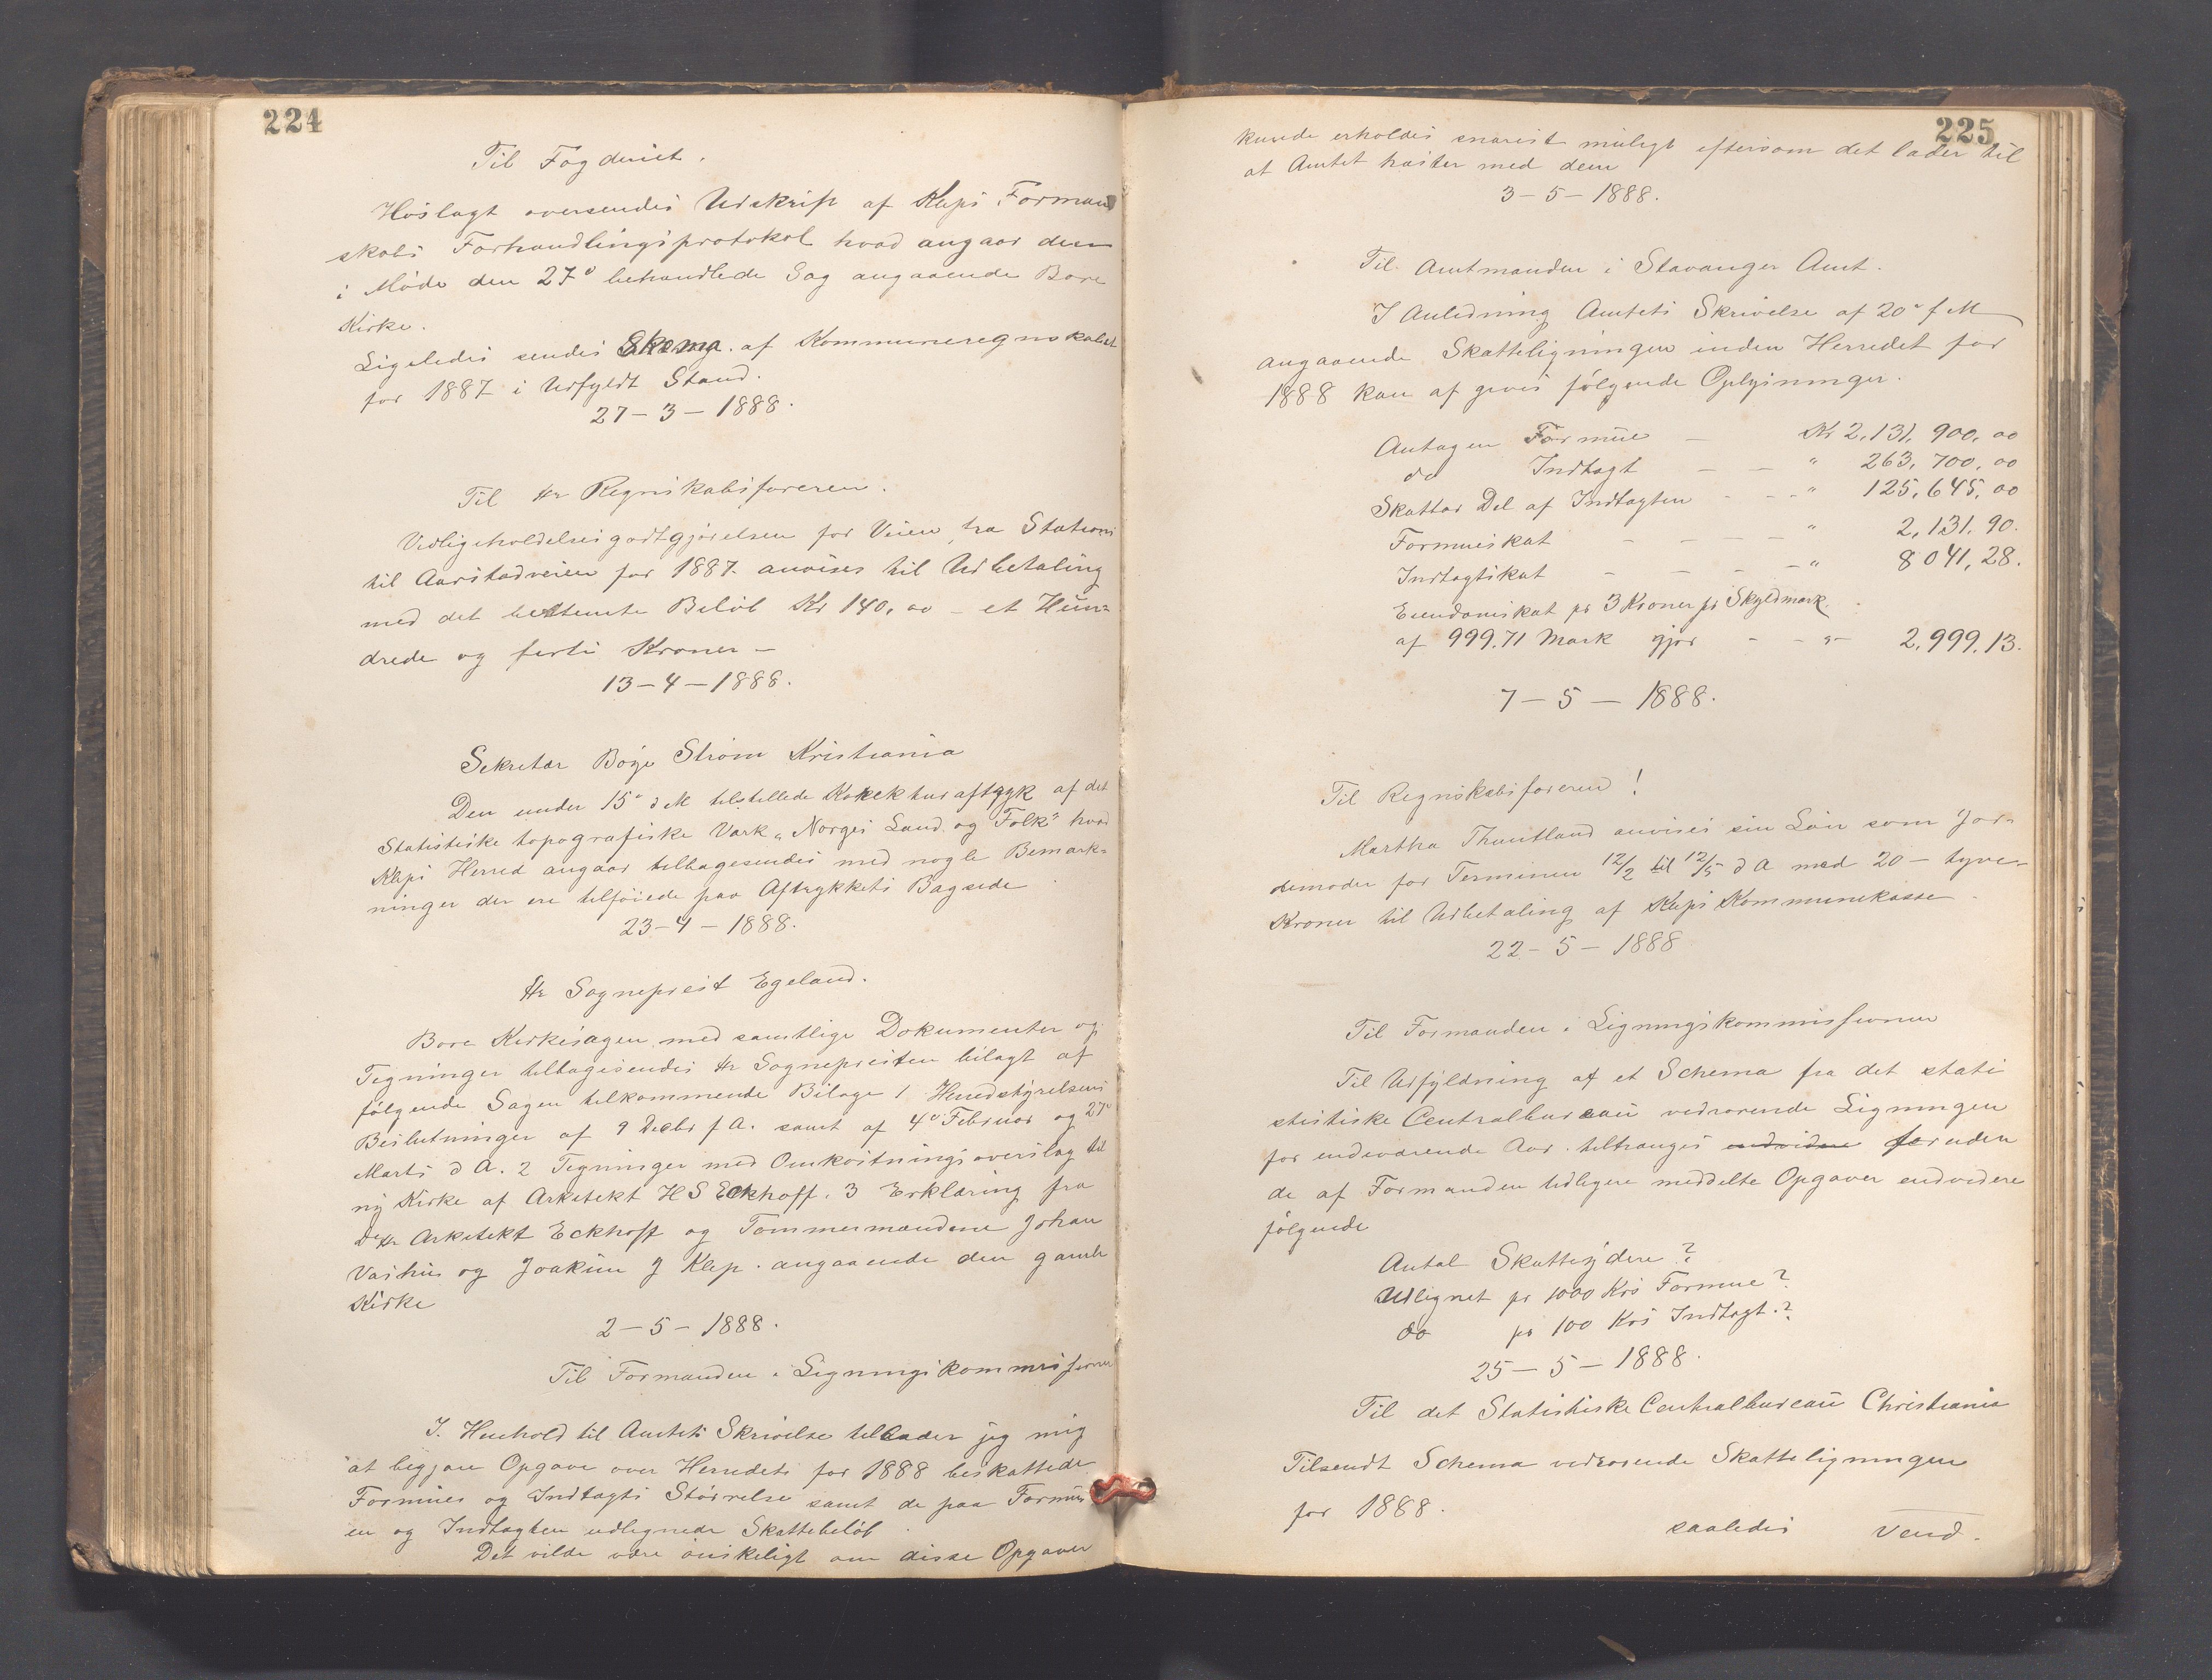 224
Til Fogderiet.
Hoslagt oversendes Udskrift af Kleps Formand
skabs Forhandlingsprotokol hvad angaar den
i Møde den 27de behandlede Sag angaaende Bore
Kirke.
Ligeledes sendes Skema af Kommuneregnskabet
for 1887 i Udfyldt Stand.
27-3-1888.
Til Hr Regnskabsføreren.
Vedligeholdelsesgodtgjørelsen for Veien fra Stations
til Aarstadveien for 1887 anvises til Udbetaling
med det bestemte Beløb Kr 140,00 - et Hun-
drede og førti Kroner -
13-4-1888.
Sekretær Bøge Strøm Kristiania
Den under 15de d M tilstillede Korekturaftryk af det
Statistiske topografiske Værk "Norges Land og Folk" hvad
Kleps Herred angaar tilbagesendes med nogle Bemærk-
ninger der ere tilføiede paa Aftrykkets Bagside
23-4-1888.
Hr Sogneprest Egeland.
Bore Kirkesagen med samtlige Dokumenter og
Tegninger tilbagesendes Hr Sognepresten bilagt af
følgende Sagen tilkommende Bilage 1 Herredstyrelsens
Beslutninger af 9 Decbr f A. samt af 4de Februar og 27de
Marts d A. 2 Tegninger med Omkostningsoverslag til
ny Kirke af Arkitekt H S Eckhoff. 3 Erklæring fra
Dhr Arkitekt Eckhoff og Tømmermændene Johan
Vashus og Joakim J Klep. angaaende den gamle
Kirke
2-5-1888.
Til Formanden i Ligningskommissionen
I Henhold til Amtets Skrivelse tillader jeg mig
at begjære Opgave over Herredets for 1888 beskattede
Formues og Indtægts Størrelse samt de paa Formu
en og Indtægten udlignede Skattebeløb
Det vilde være ønskeligt om disse Opgaver
225
kunde erholdes snarest muligt eftersom det lader til
at Amtet haster med dem
3-5-1888.
Til Amtmanden i Stavanger Amt.
I Anledning Amtets Skrivelse af 20de f M
angaaende Skatteligningen inden Herredet for
1888 kan af gives følgende Oplysninger.
Antagen Formue - Kr 2,131,900,00
do Indtægt - - " 263,700,00
Skattbar Del af Indtægten - - - " 125,645,00
Formueskat - - - - " 2,131,90.
Indtægtskat - - - - " 8041,28.
Eiendomskat pr 3 Kroner pr Skyldmark
af 999.71 Mark gjør - - " - 2,999,13.
7-5-1888.
Til Regnskabsføreren!
Martha Thuntland anvises sin Løn som Jor-
demoder for Terminen 12/2 til 12/5 d A med 20 - tyve -
Kroner til Udbetaling af Kleps Kommunekasse
22-5-1888
Til Formanden i Ligningskommissionen
Til Udfyldning af et Schema fra det stati
stistiske Centralbureau vedrørende Ligningen
for indeværende Aar. tiltrænges endvidere foruden
de af Formanden tidligere meddelte Opgaver endvidere
følgende
Antal Skatteydere?
Udlignet pr 1000 Krs Formue?
do pr 100 Krs Indtægt?
25-5-1888.
Til det Statistiske Centralbureau Christiania
Tilsendt Schema vedrørende Skatteligningen
for 1888.
saaledes Vend.